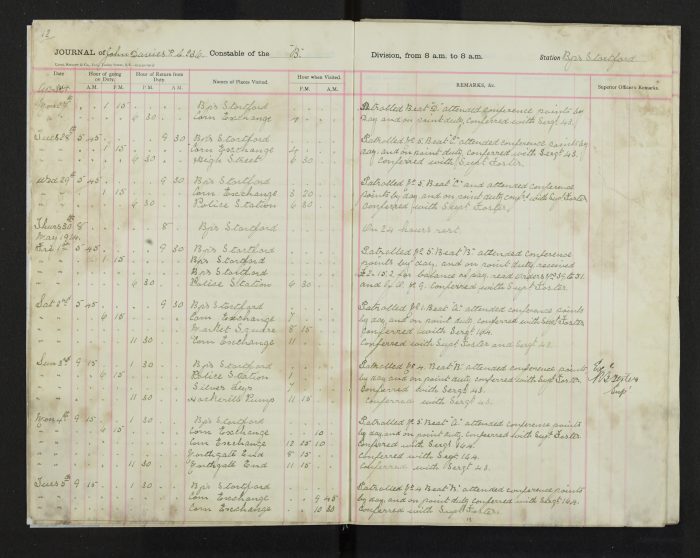 12
JOURNAL of John Davies P.C. 236 Constable of the "B" Division, from 8 a.m. to 8 a.m. Station Bp's Stortford
Date Hour of going on Duty. Hour of Return from Duty. Names of Places Visited. Hour when Visited. REMARKS, &c. Superior Officer's Remarks.
A.M. P.M. A.M. P.M. P.M. A.M.
Mon 27th 1 15 Bp's Stortford Patrolled Beat attended conference points by
" 6 30 Corn Exchange 4 day and on point duty, conferred with Sergt 43.
Tues 28th 5 45 9 30 Bp's Stortford Patrolled No 5 Beat attended conference points by
" 1 15 Corn Exchange 4 day and on point duty, conferred with Sergt 43.
" 6 30 High Street 6 30 Conferred with Supt Foster.
Wed 29th 5 45 9 30 Bp's Stortford Patrolled No 5 Beat and attended conference
" 1 15 Corn Exchange 3 20 points by day, and on point duty, with Supt Foster
" 6 30 Police Station 6 30 Conferred with Supt Foster.
Thurs 30 8 8 Bp's Stortford On 24 hours rest.
May
Fri 1st 5 45 9 30 Bp's Stortford Patrolled No 2 Beat "B" attended conference
" 1 15 Bp's Stortford points by day, and on point duty, received
Bp's Stortford for balance of pay, read Orders
" 6 30 Police Station 6 30 and by Conferred with Supt Foster.
Sat 2nd 5 45 9 30 Bp's Stortford Patrolled No 1 Beat "A" attended conference points
" 6 15 Corn Exchange 7 by day, and on point duty, conferred with Supt Foster
" Market Square 8 15 Conferred with Sergt 164.
" 11 30 Corn Exchange 11 Conferred with Supt Foster and Sergt 43.
Sun 3rd 9 15 1 30 Bp's Stortford Patrolled No 4 Beat attended conference points
" 6 15 Police Station 1 by day and on point duty, conferred with Supt Foster.
" Silver Leys 7 Conferred with Sergt 43.
" 11 30 Hockerill Pump 11 15 Conferred with Sergt 43.
Mon 4th 9 15 1 30 Bp's Stortford Patrolled No 4 Beat "A" attended conference points
" 6 15 Corn Exchange 10 by day, and on point duty, conferred with Supt Foster
" Corn Exchange 12 15 10 Conferred with Sergt 164.
" Northgate End 8 15 Conferred with Sergt 164.
" 11 30 Northgate End 11 15 Conferred with Sergt 43.
Tues 5th 9 15 1 30 Bp's Stortford Patrolled No 4 Beat attended conference points
" Corn Exchange 9 45 by day, and on point duty, conferred with Sergt 164.
" Corn Exchange 10 30 Conferred with Supt Foster.